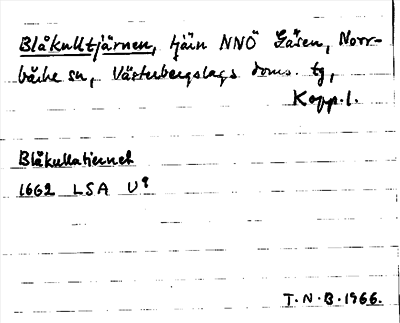 Blåkulltjärnen, tjärn NNÖ Låsen, Norr-
bärke sn, Västerbergslags doms. tg,
Kopp.l.
Blåkullatiernet
1662 LSA U⁹
T.N.B.1966.